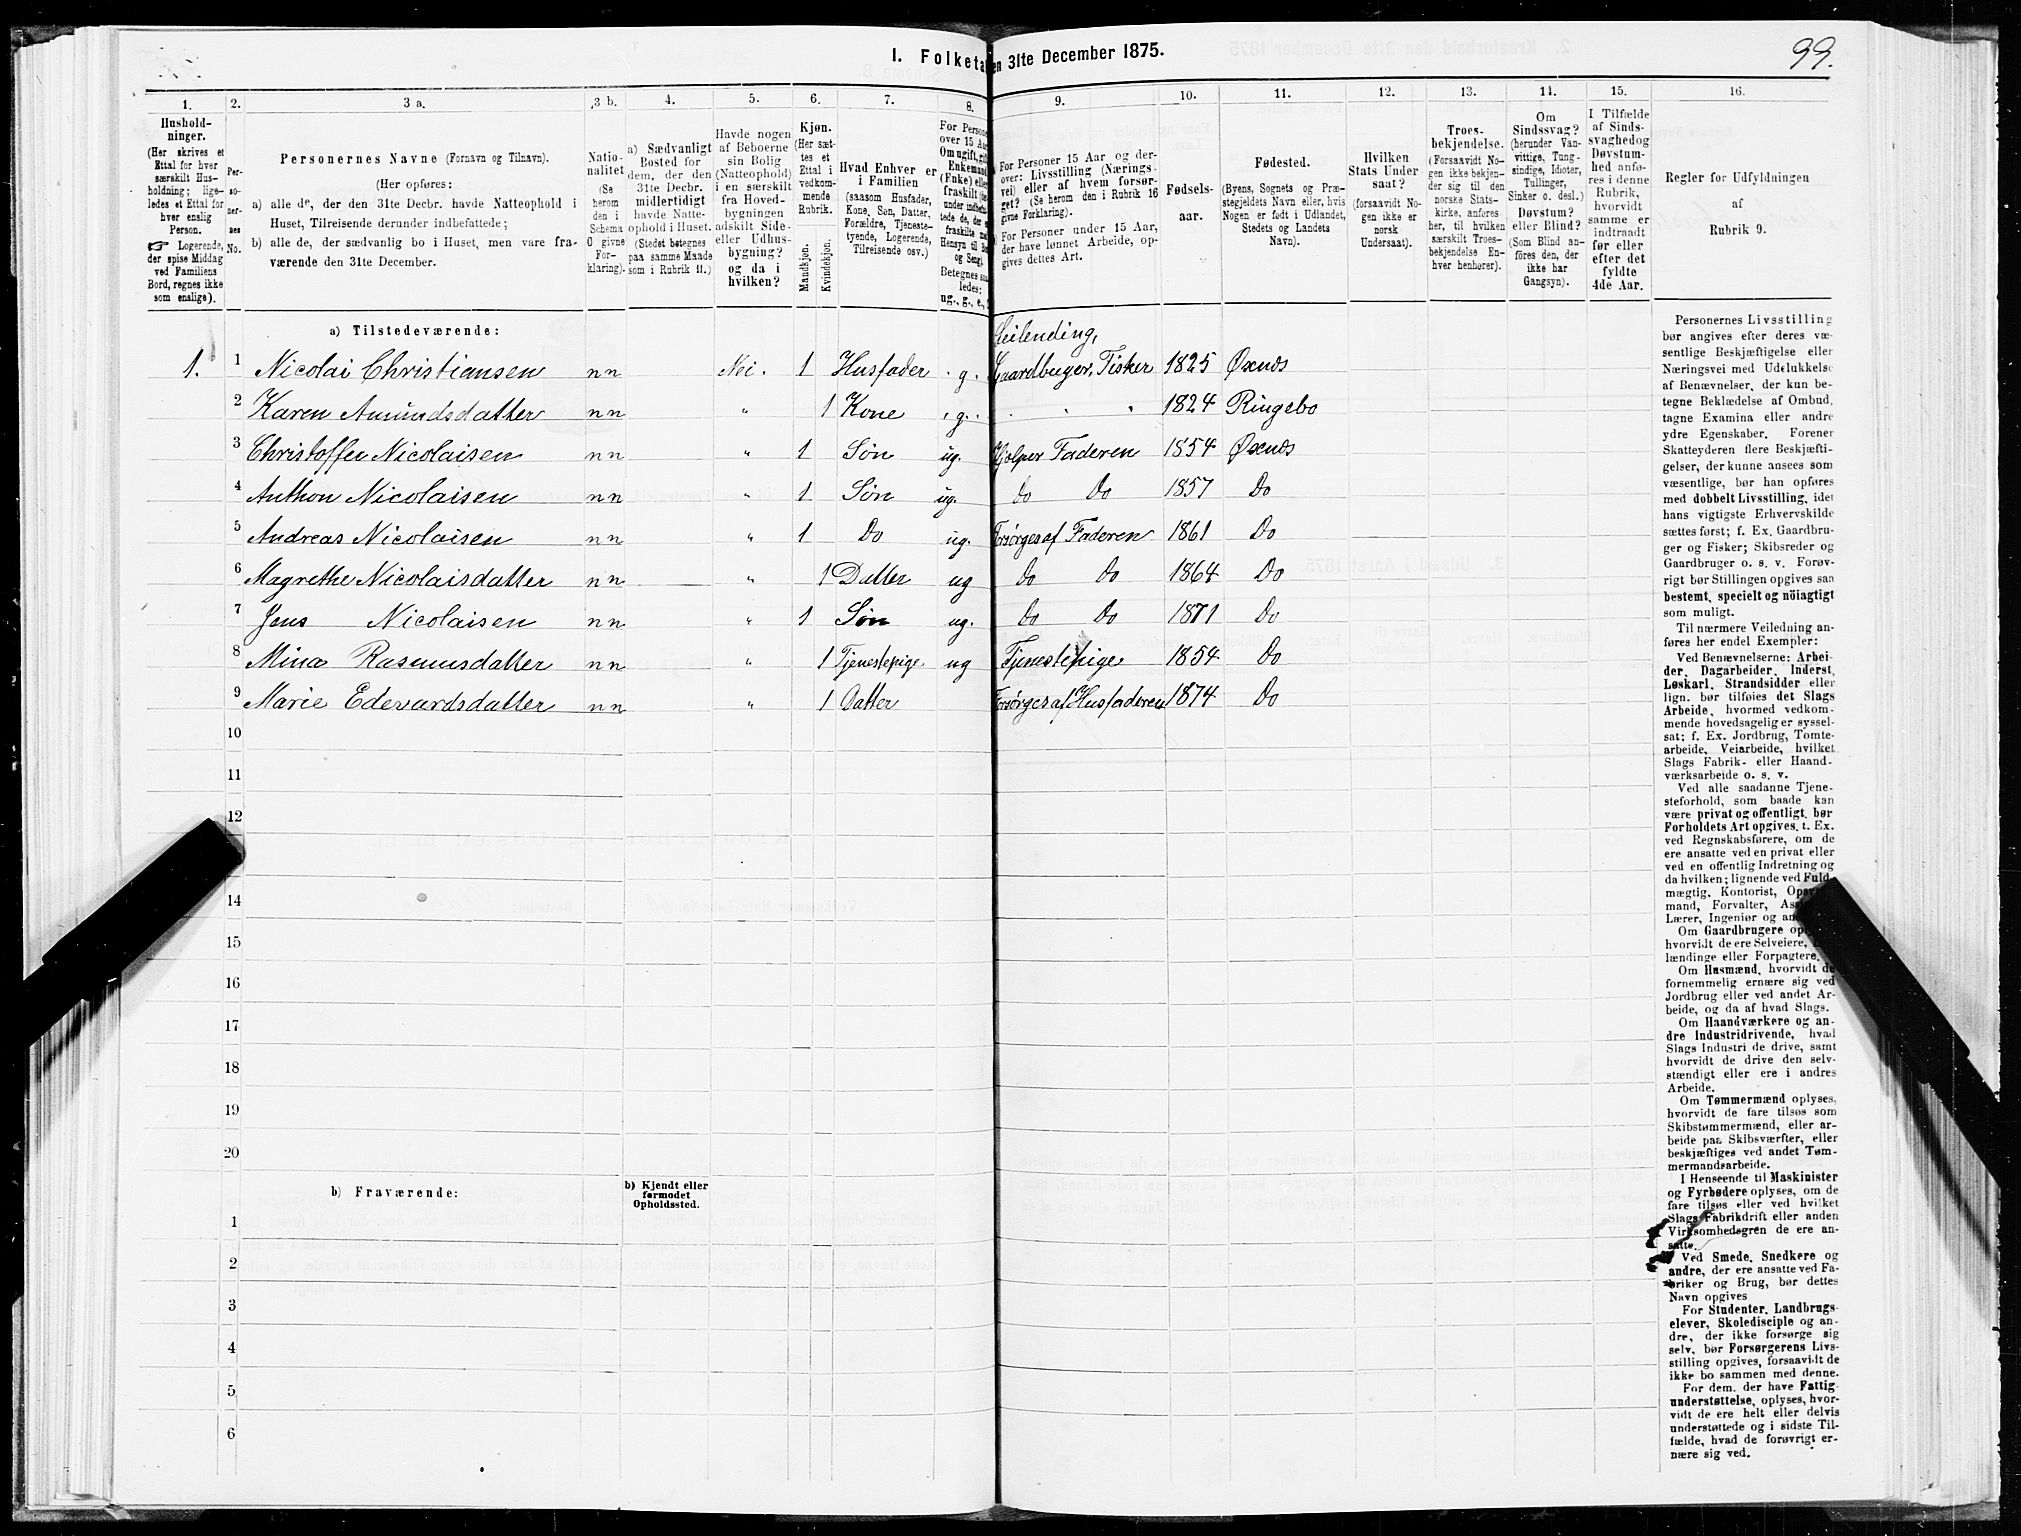 99.
I. Folketa en 31te December 1875.
1. 2. 3 a. 3 b. 4. 5. 6. 7. 8. 9. 10. 11. 12. 13. 14. 15. 16.
Hushold-
ninger.
(Her skrives et
Ettal for hver
særskilt Hus-
holdning; lige-
ledes et Ettal for
hver enslig
Person.
Logerende,
der spise Middag
ved Familiens
Bord, regnes ikke
som enslige).
Per-
so-
ner-
nes
No.
Personernes Navne (Fornavn og Tilnavn).
(Her opføres:
a) alle de, der den 31te Decbr. havde Natteophold i
Huset, Tilreisende derunder indbefattede;
b) alle de, der sædvanlig bo i Huset, men vare fra-
værende den 31te December.
Natio-
nalitet
(Se
herom
den i
Schema
O givne
For-
klaring).
a) Sædvanligt
Bosted for
dem, der den
31te Decbr.
midlertidigt
havde Natte-
ophold i Huset.
(Stedet betegnes
paa samme Maade
som i Rubrik 11.)
Havde nogen
af Beboerne
sin Bolig
(Natteophold)
i en særskilt
fra Hoved-
bygningen
adskilt Side-
eller Udhus-
bygning?
og da i
hvilken?
Kjøn.
(Her sæt-
tes et
Ettal i
vedkom-
mende
Rubrik.
Mandkjøn.
Kvindekjøn.
Hvad Enhver er
i Familien
(saasom Husfader,
Kone, Søn, Datter,
Forældre, Tjeneste-
tyende, Logerende,
Tilreisende osv.)
For Persone
over 15 Aar
Om ugift, gift
Enkemand
(Enke) elle
fraskilt
Betegnes saa
ledes:
ug., g., e.,
For Personer 15 Aar og der-
over: Livsstilling (Nærings-
vei) eller af hvem forsør-
get? (Se herom den i Rubrik 16
givne Forklaring).
For Personer under 15 Aar,
der have lønnet Arbeide, op-
gives dettes Art.
Fødsels-
aar.
Fødested.
(Byens, Sognets og Præ-
stegjeldets Navn eller, hvis
Nogen er født i Udlandet,
Stedets og Landets
Navn).
Hvilken
Stats Under
saat?
(forsaavidt No-
gen ikke er
norsk
Undersaat).
Troes-
bekjendelse.
(Forsaavidt No-
gen ikke bekjen-
der sig til den
norske Stats-
kirke, anføres
her, til hvilken
særskilt Troes-
bekjendelse En-
hver henhører).
Om
Sindssvag?
(herunder Van-
vittige, Tung-
sindige, Idioter,
Tullinger,
Sinker o. desl.)
Døvstum?
eller Blind?
(Som Blind an-
føres den, der
ikke har
Gangsyn).
I Tilfælde
af Sinds-
svaghed og
Døvstum-
hed anfø-
res i denne
Rubrik,
hvorvidt
samme er
indtraadt
før eller
efter det
fyldte
4de Aar.
Regler for Udfyldningen
af
Rubrik 9.
a) Tilstedeværende:
Leilending,
1. 1 Nicolai Christiansen n n Nei. 1 Husfader g. Gaardbruger, Fisker 1825 Øxnds
2 Karen Amundsdatter n n " 1 Kone g. " " " 1824 Ringebo
3 Christoffer Nicolaisen n n " 1 Søn ug. Hjelper Faderen 1854 Øxnds
4 Anthon Nicolaisen n n " 1 Søn ug. Do Do 1857 Do
5 Andreas Nicolaisen n n " 1 Do ug. Forsørges af Faderen 1861 Do
6 Magrethe Nicolaisdatter n n " 1 Datter ug Do Do 1864 Do
7 Jens Nicolaisen n n " 1 Søn ug. Do Do 1871 Do
8 Mina Rasmusdatter n n " 1 Tjenestepige ug Tjenestepige 1854 Do
9 Marie Edevardsdatter n n " 1 Datter Forsørges af Husfaderen 1874 Do
10
11
12
14
15
16
17
18
19
20
b) Fraværende:
b) Kjendt eller
formodet
Opholdssted.
1
2
3
4
5
6
Personernes Livsstilling
bør angives efter deres væ-
sentlige Beskjæftigelse eller
Næringsvei med Udelukkelse
af Benævnelser, der kun be-
tegne Beklædelse af Ombud,
tagne Examina eller andre
ydre Egenskaber. Forener
Skatteyderen flere Beskjæfti-
gelser, der kunne ansees som
væsentlige, bør han opføres
med dobbelt Livsstilling, idet
hans vigtigste Erhvervskilde
sættes først; f. Ex. Gaardbru-
ger og Fisker; Skibsreder og
Gaardbruger o. s. v. Forøv-
rigt bør Stillingen opgives saa
bestemt, specielt og nöiagtigt
som muligt.
Til nærmere Veiledning an-
føres her endel Exempler:
Ved Benævnelserne: Arbei-
der, Dagarbeider, Inderst,
Løskarl, Strandsidder eller
lign. bør tilføies det Slags
Arbeide, hvormed vedkom-
mende hovedsagelig er syssel-
sat; f. Ex. Jordbrug, Tomte-
arbeide, Veiarbeide, hvilket
Slags Fabrik- eller Haand-
værksarbeide o. s. v.
Ved alle saadanne Tjene-
steforhold, som baade kan
være privat og offentligt, bør
Forholdets Art opgives, t. Ex.
ved Regnskabsførere, om de
ere ansatte ved en privat eller
ved en offentlig Indretning og
da hvilken; lignende ved Fuld-
mægtig, Kontorist, Opsy
mand, Forvalter, Ass
Lærer, Ingeniør og an
Om Gaardbrugere op
hvorvidt de ere Selveiere,
lændinge eller Forpagtere.
Om Husmænd, hvorvidt de
fornemmelig ernære sig ved
Jordbrug eller ved andet Ar-
beide, og da af hvad Slags.
Om Haandværkere og an-
dre Industridrivende, hvad
Slags Industri de drive, samt
hvorvidt de drive den selv-
stændigt eller ere i andres
Arbeide.
Om Tømmermænd oplyses,
hvorvidt de fare tilsøs som
Skibstømmermænd, eller ar-
beide paa Skibsværfter, eller
beskjæftiges ved andet Tøm-
mermandsarbeide.
I Henseende til Maskinister
og Fyrbødere oplyses, om de
fare tilsøs eller ved hvilket
Slags Fabrikdrift eller anden
Virksomhedsgren de ere an-
satte.
Ved Smede, Snedkere og
andre, der ere ansatte ved Fa-
briker og Brug, bør dettes
Navn opgives
For Studenter, Landbrugs-
elever, Skoledisciple og an-
dre, der ikke forsørge sig
selv, bør Forsørgerens Livs-
stilling opgives, forsaavidt de
ikke bo sammen med denne.
For dem, der have Fattig-
understøttelse, oplyses, hvor-
vidt de ere helt eller delvis
understøttede og i sidste Til-
fælde, hvad de forøvrigt er-
nære sig ved.